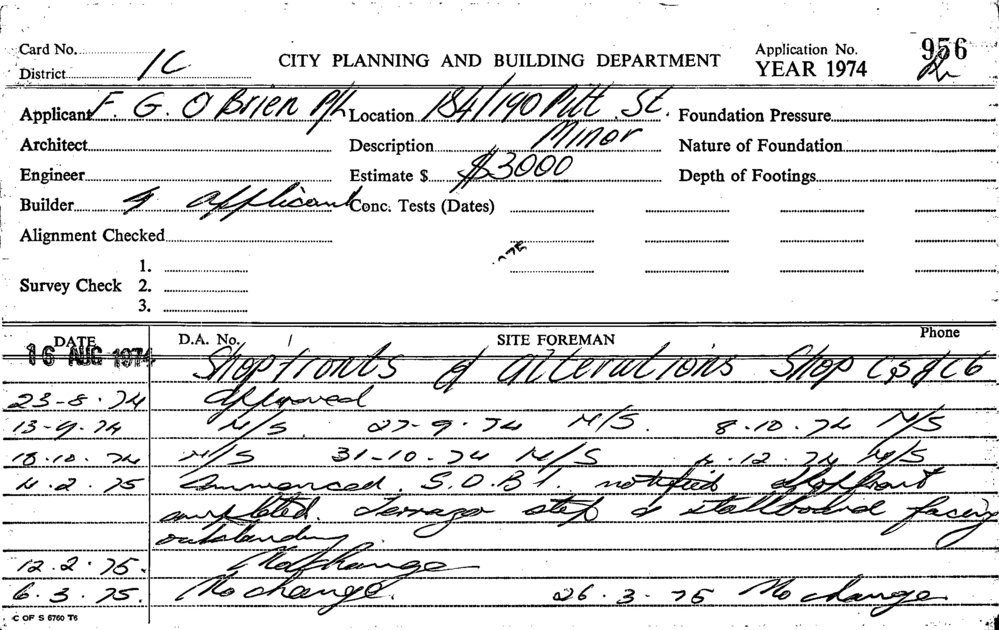 Card No.
District 1C
CITY PLANNING AND BUILDING DEPARTMENT
Application No. 956
YEAR 1974
Applicant F. G. O'Brien P/L Location 184/190 Pitt St. Foundation Pressure
Architect Description Minor Nature of Foundation
Engineer Estimate $ $3000 Depth of Footings
Builder applicant Conc. Tests (Dates)
Alignment Checked
75
1.
Survey Check 2.
3.
DATE D.A. No. SITE FOREMAN Phone
16 AUG 1974 Shopfronts & alterations Shop C5 & C6
23-8-74 approved
13-9-74 N/S. 27-9-74 N/S. 8-10-74 N/S
18.10.74 N/S 31-10-74 N/S 4.12.74 N/S
4.2.75 Commenced. S.O.B.I. notified shopfront
completed. Terrazo step & stallboard facing
outstanding.
12.2.75. No change
6.3.75. No change. 26.3.75 No change.
C OF S 6760 T6